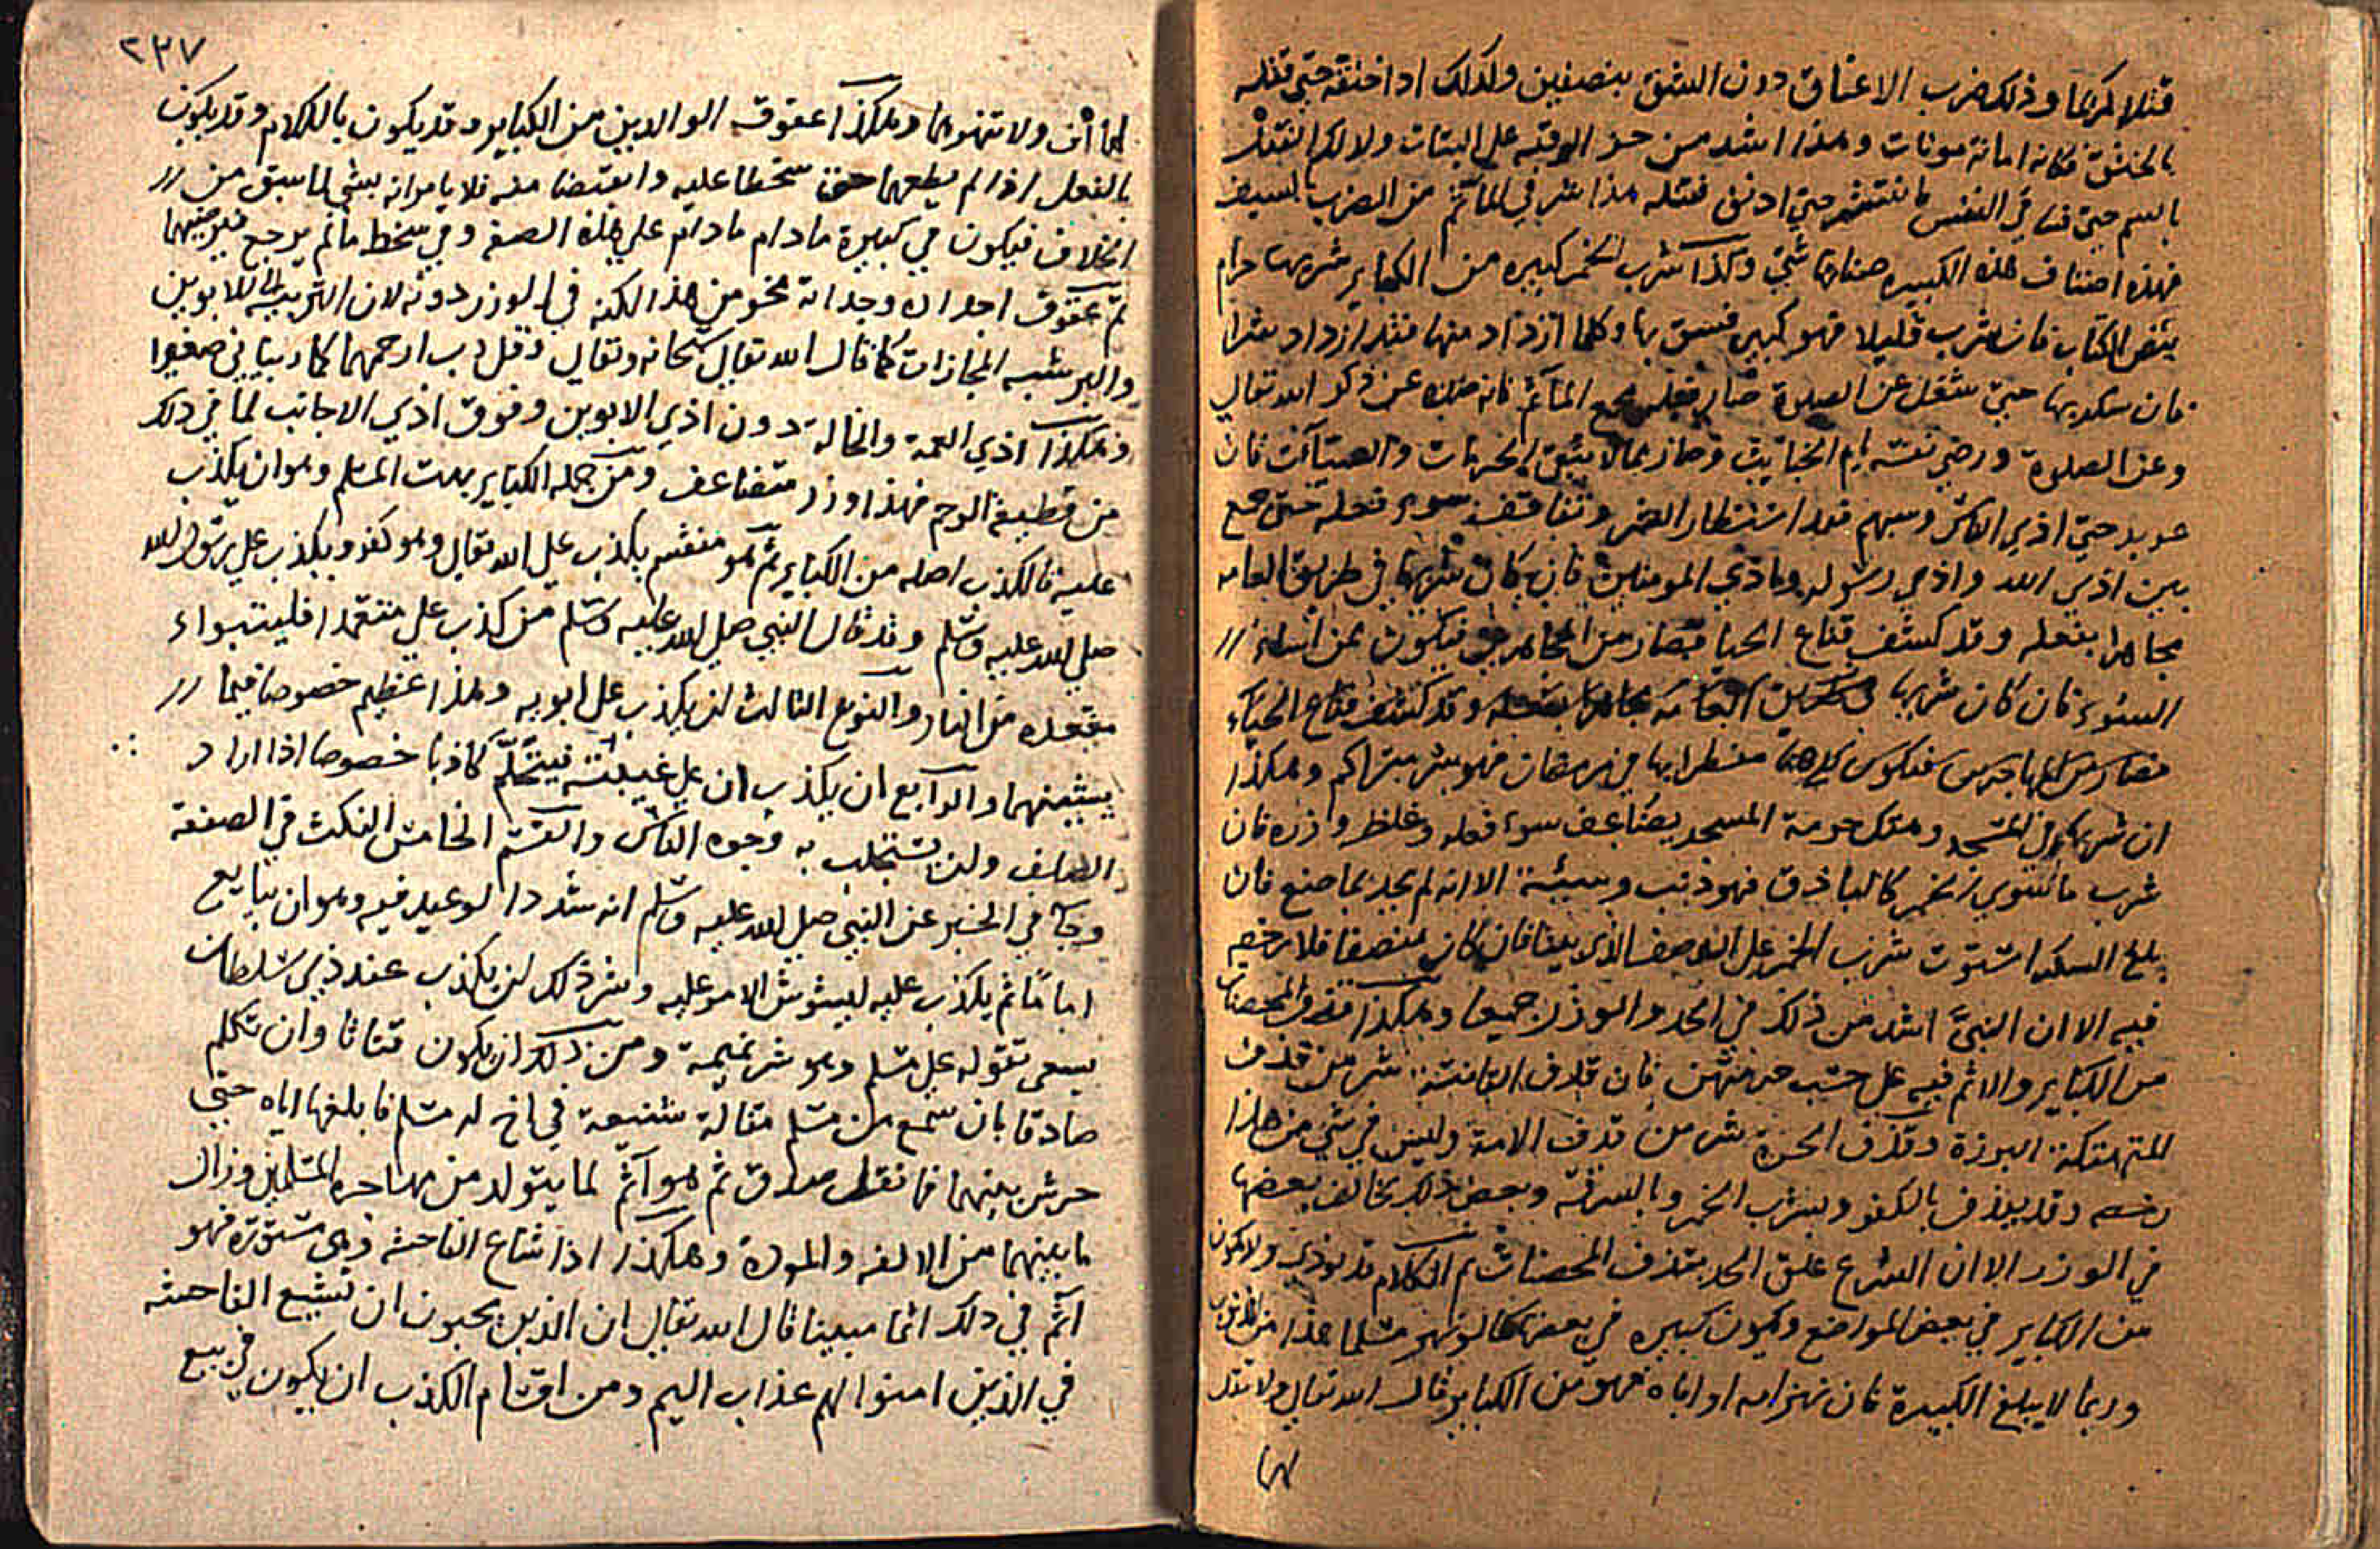 قتلا كريما وذلك ضرب الاعناق دون الشق بنصفين ولذلك اذا خنقه حتى قتله
بالخنق فكانه اماته موتات وهذا اشد من حز الرقبة على البتات ولا لم القتل
بالسم حتى فى النفس حتى اذ قتله هذا شر في المآثم من الضرب بالسيف
فهذه اصناف هذه الكبيره شتي وكذا شرب الخمر كبيره من الكباير شربها حرام
بنص الكتاب فان شرب قليلا فهو كبير فسق بها وكلما ازداد منها فقد ازداد شرا
فان سكر بها حتى شغل عن الصلوة صار فعله مجمع المآثم فانه صد عن ذكر الله تعالي
وعن الصلوة ورضي نفسه ام الخبايث وصار بمالا يتقى الحرمات والسيآت فان
عربد حتى اذى الناس وسبهم فقد استطار الشر وتفاقم سوء فعله حتى جمع
بين اذى الله واذى رسوله واذى المومنين فان كان شربها في طريق العامه
مجاهرا بفعله وقد كشف قناع الحيا فصار من المجاهرين فيكون من اسوء
السوء فان كان شربها في طريق العامه مجاهرا بفعله وقد كشف قناع الحياء
فصار من المجاهرين فيكون مفطرا بها في رمضان فهو شر متراكم وهكذا
ان شربها في المسجد وهتك حرمة المسجد يضاعف سوء فعله وغلظ وازره فان
شرب ما سوى الخمر كالباذق فهو ذنب وسيئة الا انه لم يحد بما صنع فان
بلغ السكر استوت شرب الخمر على الوصف الذي بينا فان كان منصفا فلا رخصه
فيه الا ان النيّ اشد من ذلك في الحد والوزر جميعا وهكذا قذف المحصنات
من الكباير والاثم فيه على حسب حرمتهن فان قذف القانتة شر من قذف
المتهتكة البرزة وقذف الحرة شر من قذف الامة وليس في شي من هذا
رخصه وقد يقذف بالكفر وبشرب الخمر وبالسرقة وبعض ذلك يخالف بعضها
في الوزر الا ان الشرع علق الحد بقذف المحصنات ثم الكلام قد يوذى ولا يكون
من الكباير في بعض المواضع ويكون كبيره في بعضها كالو نهر مسلما هذا من الذنوب
وربما لا يبلغ الكبيرة فان نهر امه او اباه فهو من الكباير قال الله تعالي ولا تقل
لهما
٢٣٧
لهما أف ولا تنهرهما وهكذا عقوق الوالدين من الكباير وقد يكون بالكلام وقد يكون
بالفعل اذا لم يطعهما حتى سخطا عليه وانقبضا منه فلا يامرانه بشي لما سبق من
الخلاف فيكون في كبيرة مادام مادام علي هذه الصفه وفي سخط مالم يرجع فيرضيهما
ثم عقوق اجداده وجداته نحو من هذا لكنه في الوزر دونه لان التربية للابوين
والبر شبه المجازات كما قال الله تعالى سبحانه وتعالى وقل رب ارحمهما كما ربياني صغيرا
وهكذا اذي العمة والخالة دون اذي الابوين وفوق اذي الاجانب لما في ذلك
من قطيعة الرحم فهذا وزر متضاعف ومن جمله الكباير بهت المسلم وهو ان يكذب
عليه فالكذب اصله من الكباير ثم هو منقسم يكذب على الله تعالى وهو كفر ويكذب على رسول الله
صلي الله عليه وسلم وقد قال النبي صلى الله عليه وسلم من كذب علي متعمدا فليتبواء
مقعده من النار والنوع الثالث ان يكذب على ابويه وهذا عظيم خصوصا فيما
يشينهما والرابع ان يكذب ان على عينيه فيتحلّم كاذبا خصوصا اذا اراد
الصلف ولان يستجلب به وجوه الناس والقسم الخامس النكث في الصفقة
وجآ في الخبر عن النبي صلى الله عليه وسلم انه شدد الوعيد فيه وهو ان يبايع
اماما ثم يكذب عليه ليشوش الامر عليه وشر ذلك ان يكذب عند ذي سلطان
يسعى تقوله على مسلم وهو شر نميمة ومن ذلك ان يكون قتاتا وان تكلم
صادقا بان سمع من مسلم مقالة شنيعة في اخ له مسلم فابلغها اياه حتى
حرش بينهما فما نقله صدق ثم هو آثم لما يتولد من مهاجره المسلمين وزال
مابينهما من الالفه والمودة وهكذا اذا شاع الفاحشه وهى مستورة فهو
آثم في ذلك اثما مبينا قال الله تعالى ان الذين يحبون ان تشيع الفاحشه
في الذين امنوا لهم عذاب اليم ومن اقسام الكذب ان يكون في بيع